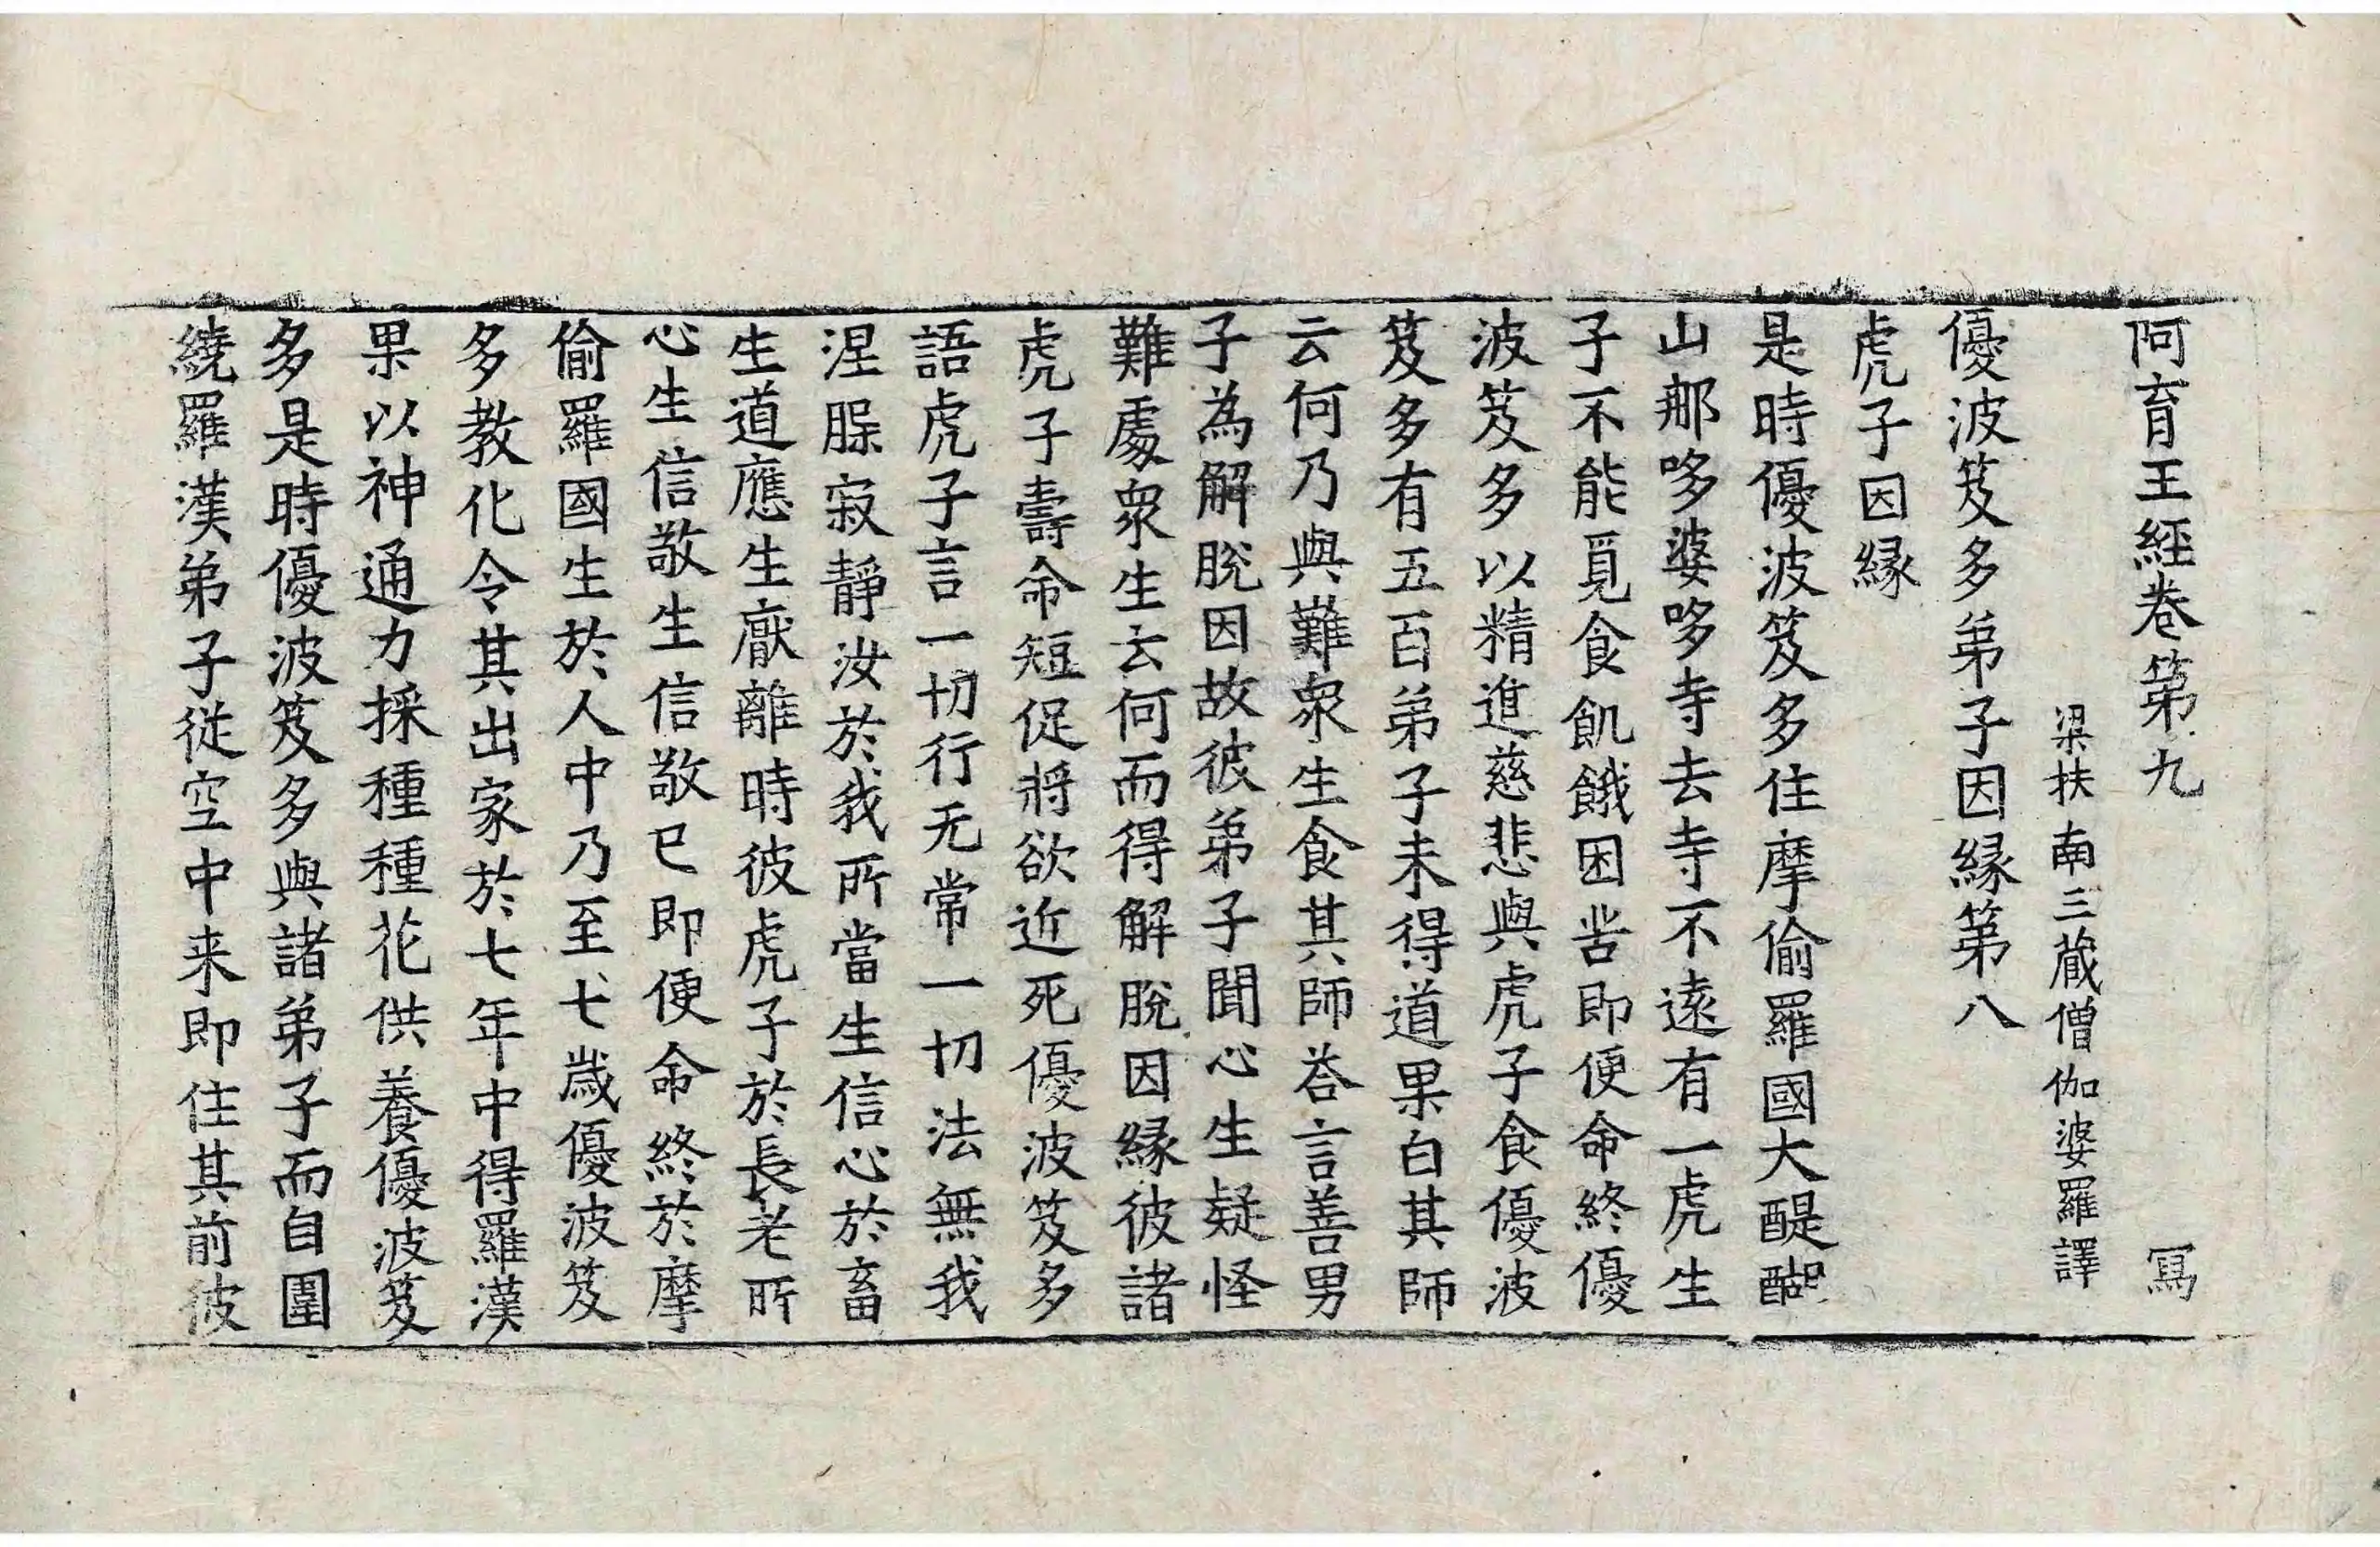 阿育王經卷第九 寫
梁扶南三藏僧伽婆羅譯
優波笈多弟子因緣第八
虎子因緣
是時優波笈多住摩偷羅國大醍醐
山那哆婆哆寺去寺不遠有一虎生
子不能覓食飢餓困苦即便命終優
波笈多以精進慈悲與虎子食優波
笈多有五百弟子未得道果白其師
云何乃與難衆生食其師荅言善男
子為解脫因故彼弟子聞心生疑怪
難處衆生云何而得解脫因緣彼諸
虎子壽命短促將欲近死優波笈多
語虎子言一切行无常一切法無我
涅槃寂靜汝於我所當生信心於畜
生道應生厭離時彼虎子於長老所
心生信敬生信敬已即便命終於摩
偷羅國生於人中乃至七歲優波笈
多教化令其出家於七年中得羅漢
果以神通力採種種花供養優波笈
多是時優波笈多與諸弟子而自圍
繞羅漢弟子從空中来即住其前彼